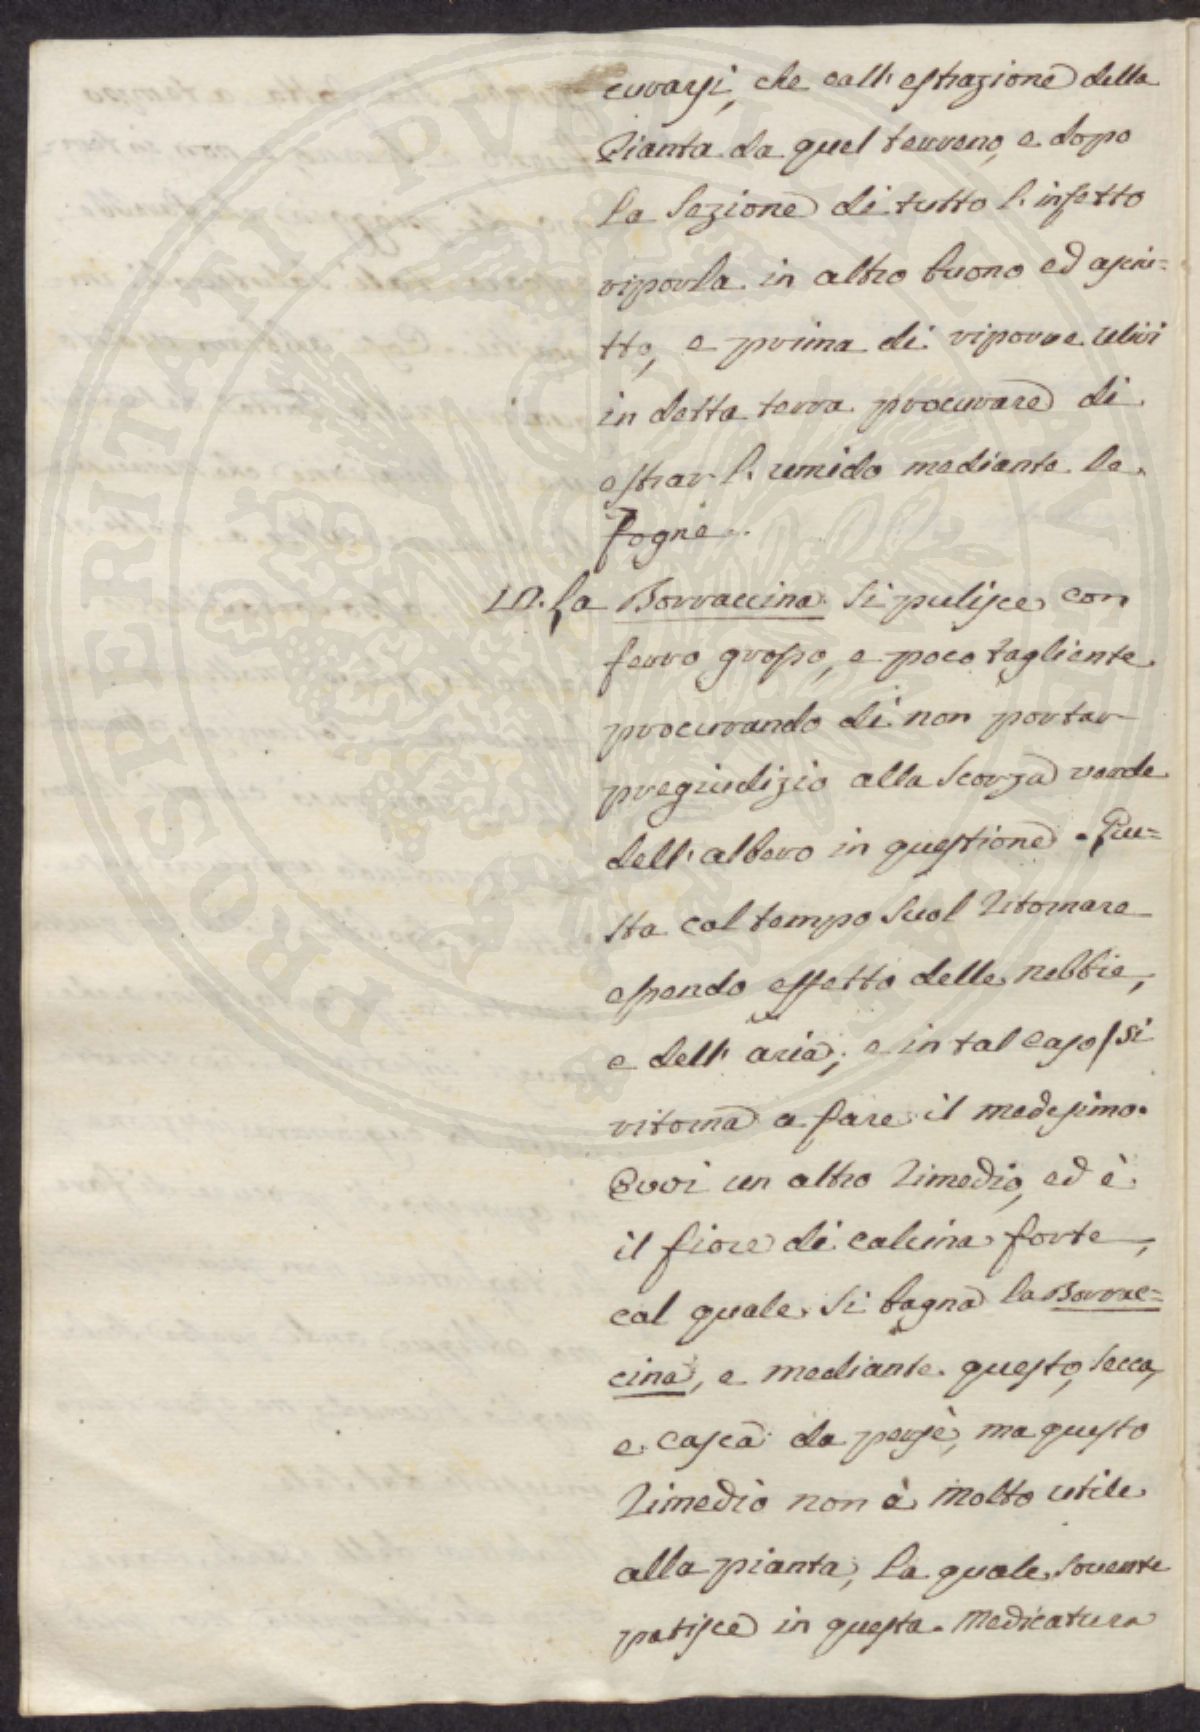 curarsi, che coll' estrazione della
Pianta da quel terreno, e dopo
la Sezione di tutto l' infetto
riporla in altro buono ed asciu=
tto, e prima di riporre ulivi
in detta terra procurare di
estrar l' umido mediante le
fogne.
La Borraccina si pulisce con
ferro grosso, e poco tagliente
procurando di non portar
pregiudizio alla Scorza verde
dell' albero in questione. Que=
sta col tempo Suol Ritornare
essendo effetto delle nebbie,
e dell' aria; e in tal caso si
ritorna a fare il medesimo.
Evvi un altro Rimedio, ed è
il fiore di calcina forte,
col quale si bagna la Borrac=
cina, e mediante questo, secca,
e casca da persè, ma questo
Rimedio non è molto utile
alla pianta, la quale sovente
patisce in questa Medicatura
PROSPERITATI PUBLICAE AUGENDAE